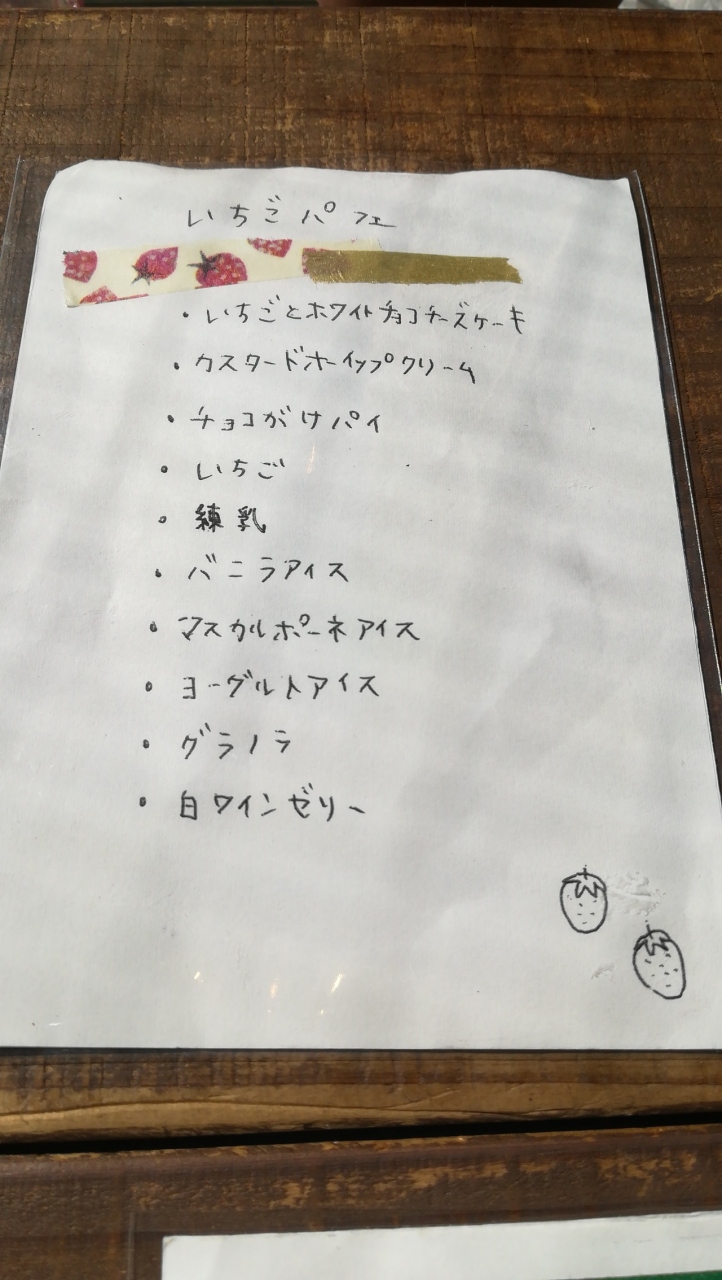 いちごパフェ
・いちごとホワイトチョコチーズケーキ
・カスタードホイップクリーム
・チョコがけパイ
・いちご
・練乳
・バニラアイス
・マスカルポーネアイス
・ヨーグルトアイス
・グラノラ
・白ワインゼリー